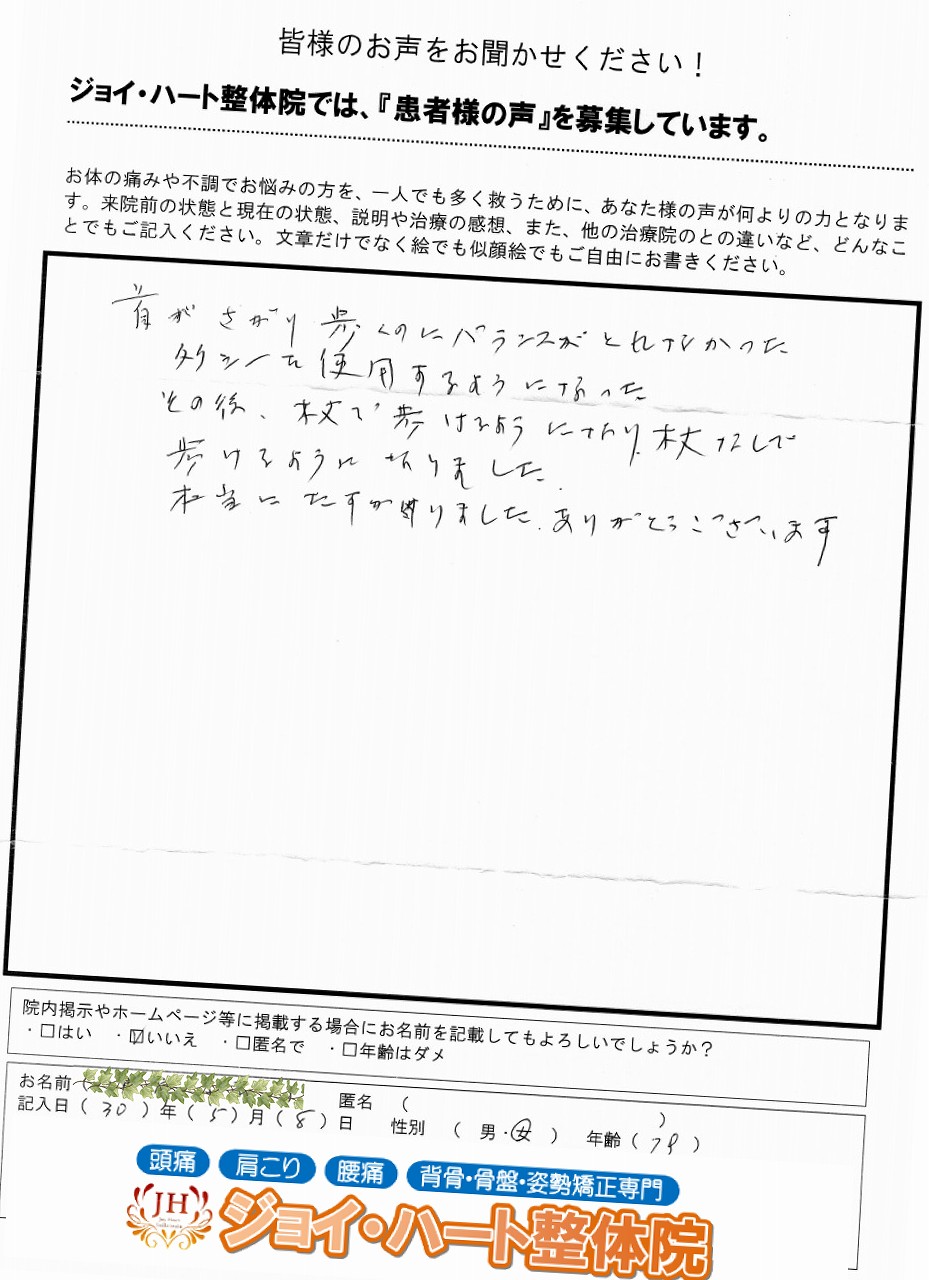 皆様のお声をお聞かせください！
ジョイ・ハート整体院では、『患者様の声』を募集しています。
お体の痛みや不調でお悩みの方を、一人でも多く救うために、あなた様の声が何よりの力となりま
す。来院前の状態と現在の状態、説明や治療の感想、また、他の治療院のとの違いなど、どんなこ
とでもご記入ください。文章だけでなく絵でも似顔絵でもご自由にお書きください。
首がさがり歩くのにバランスがとれなかった
タクシーを使用するようになった
その後、杖で歩けるようになり、杖なしで
歩けるようになりました。
本当にたすかりました。ありがとうございます
院内掲示やホームページ等に掲載する場合にお名前を記載してもよろしいでしょうか？
・□はい ・☑いいえ ・□匿名で ・□年齢はダメ
お名前（ 匿名 （ ）
記入日（ 30 ）年（ 5 ）月（ 8 ）日 性別 （ 男・女 ） 年齢（ 79 ）
頭痛 肩こり 腰痛 背骨・骨盤・姿勢矯正専門
JH ジョイ・ハート整体院